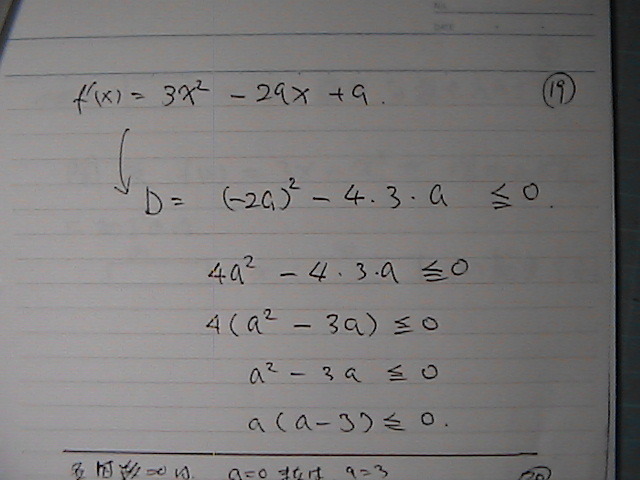 NO.
DATE
f'(x) = 3x² - 2ax + a. ⑲
D = (-2a)² - 4・3・a ≦ 0.
4a² - 4・3・a ≦ 0
4(a² - 3a) ≦ 0
a² - 3a ≦ 0
a(a-3) ≦ 0.
a=0 または a=3